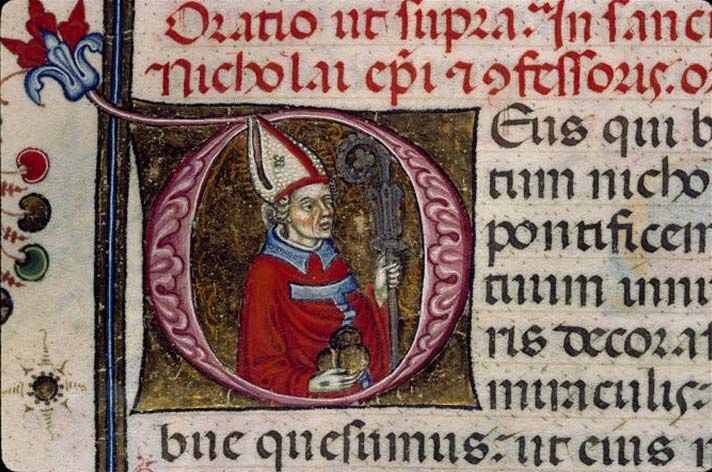 Oratio ut supra. In sanc
Nicholai ep̄i ⁊ ꝯfessoris. o
DEus qui b
tum nicho
pontificem
tuum innu
ris decoras
miraculis:
bue quesumus: ut eius